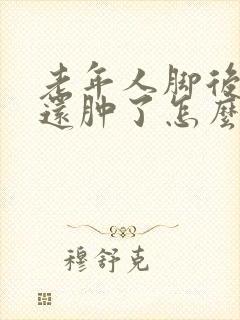 老年人脚後
還肿了怎麼
穆舒克